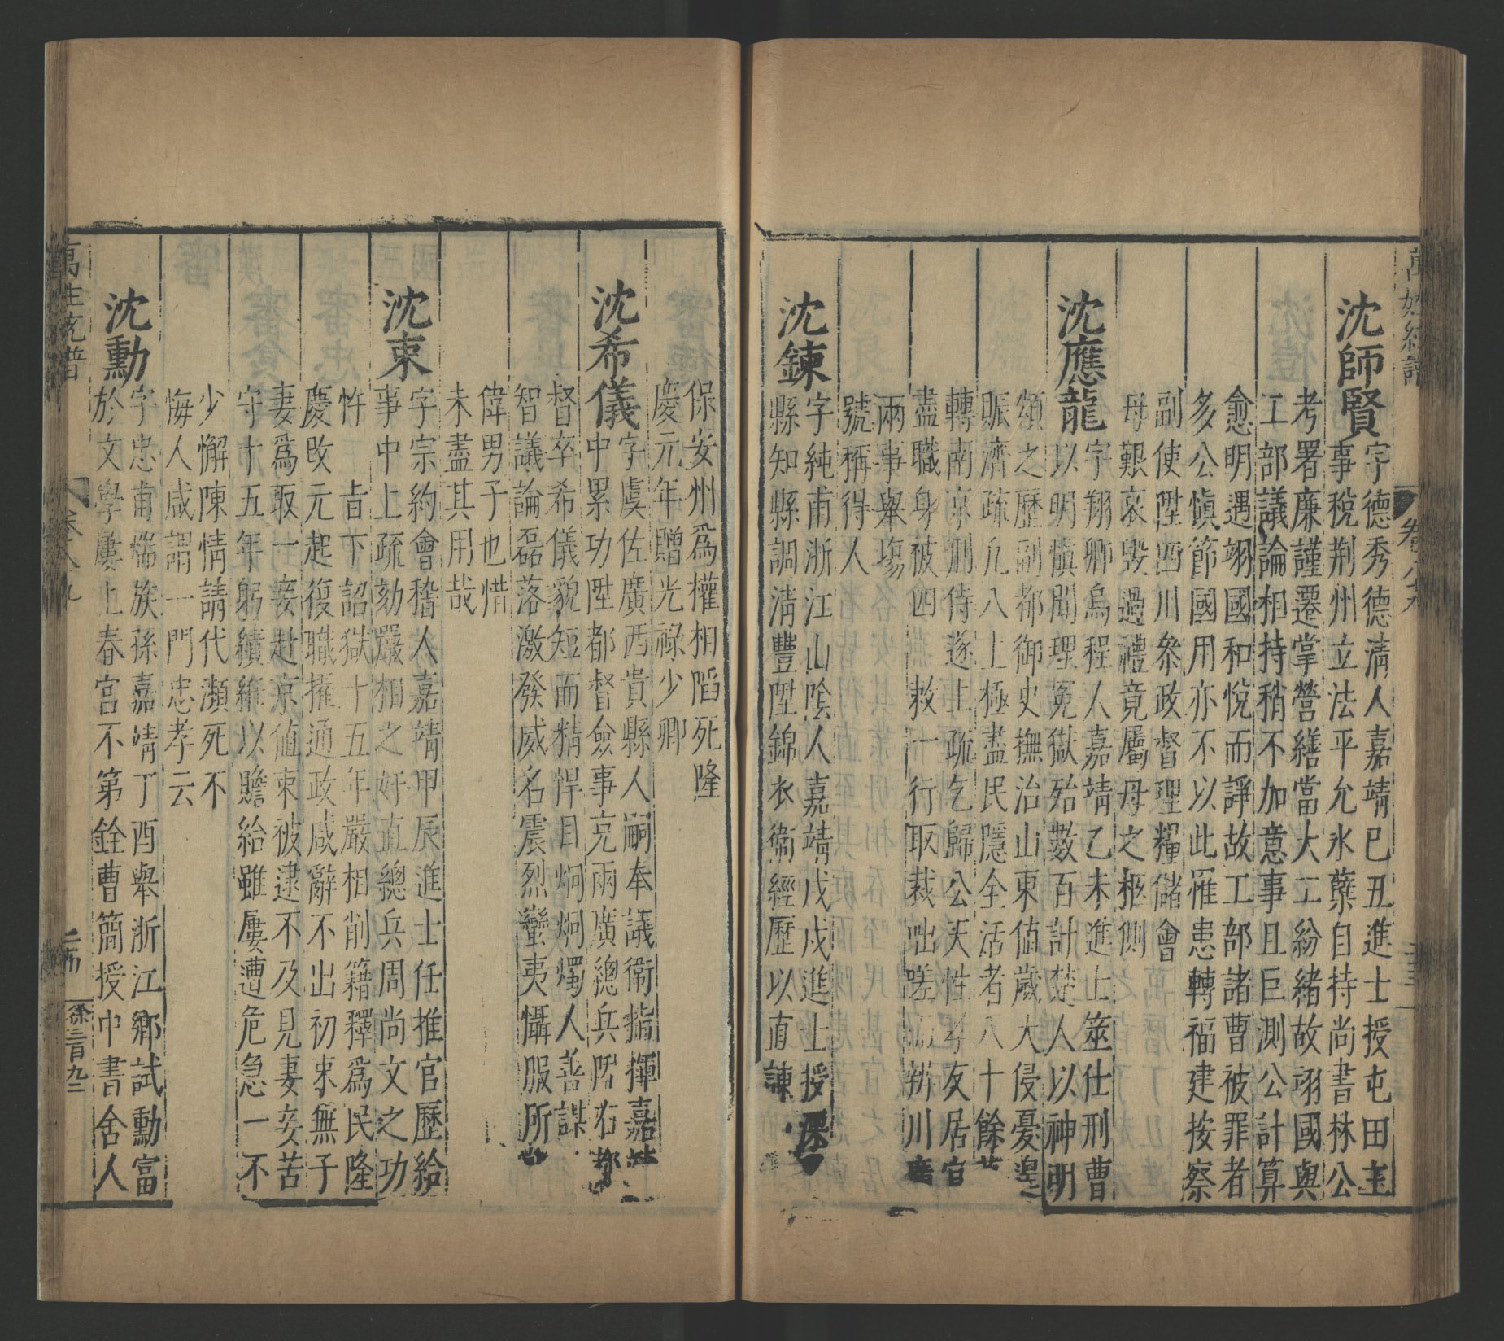 萬姓統譜
卷八十九
沈師賢
字德秀德清人嘉靖巳丑進士授屯田主
事稅荆州立法平允氷蘗自持尚書林公
考署廉謹遷掌營繕當大工紛緒故翊國與
工部議論相持稍不加意事且叵測公計算
愈明遇翊國和悅而諍故工部諸曹被罪者
多公愼節國用亦不以此罹患轉福建按察
副使陞四川叅政督理糧儲會
母艱哀毀過禮竟屬母之柩側
沈應龍
字翔卿烏程人嘉靖乙未進士筮仕刑曹
以明愼聞理寃獄殆數百計楚人以神明
頌之歷副都御史撫治山東值歲大侵憂遑
賑濟疏凡八上極盡民隱全活者八十餘
轉南京刑侍遂上疏乞歸公天性孝友居官
盡職身被四 救十行取裁咄嗟 辦川廣
兩事舉塲
號稱得人
沈鍊
字純甫浙江山陰人嘉靖戊戌進士授
縣知縣調清豐陞錦衣衛經歷以直諫
保安州爲權相陷死隆
慶元年贈光祿少卿
沈希儀
字虞佐廣西貴縣人嗣奉議衛指揮嘉
中累功陞都督僉事克兩廣總兵階右都
督卒希儀貌短而精悍目炯炯燭人善謀
智議論磊落激發威名震烈蠻夷懾服所
偉男子也惜
未盡其用哉
沈束
字宗約會稽人嘉靖甲辰進士任推官歷給
事中上疏劾嚴相之奸直總兵周尚文之功
忤 旨下詔獄十五年嚴相削籍釋爲民隆
慶攺元起復職擢通政咸辭不出初束無子
妻爲取一妾赴京值束被逮不及見妻妾苦
守十五年躬績維以贍給雖屢遭危急一不
少懈陳情請代瀕死不
悔人咸謂一門忠孝云
沈勳
字忠甫惴族孫嘉靖丁酉舉浙江鄉試勳富
於文學屢上春宮不第銓曹簡授中書舍人
萬姓統譜
卷八九